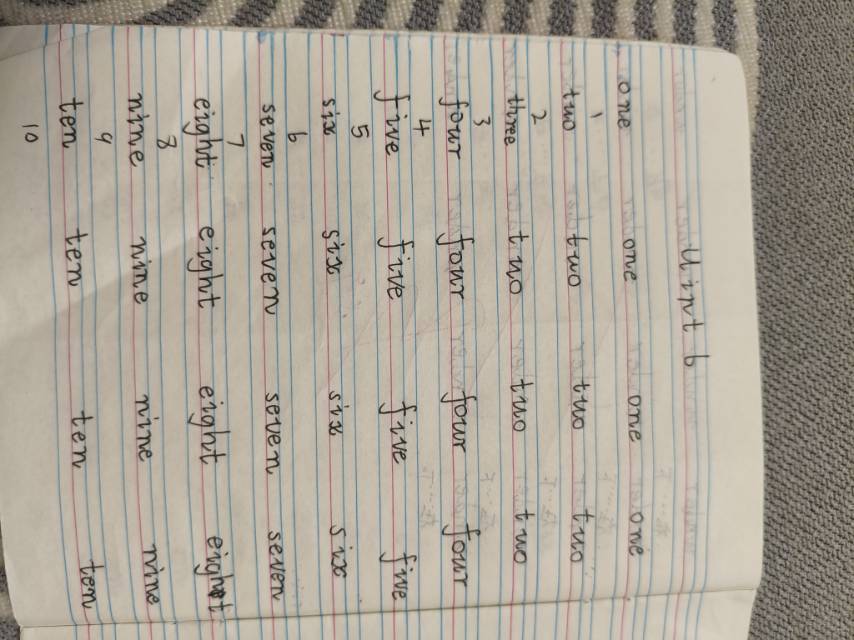 Uint 6
one one one one
1
two two two two
2
three two two two
3
four four four four
4
five five five five
5
six six six six
6
seven seven seven seven
7
eight eight eight eight
8
nine nine nine nine
9
ten ten ten ten
10